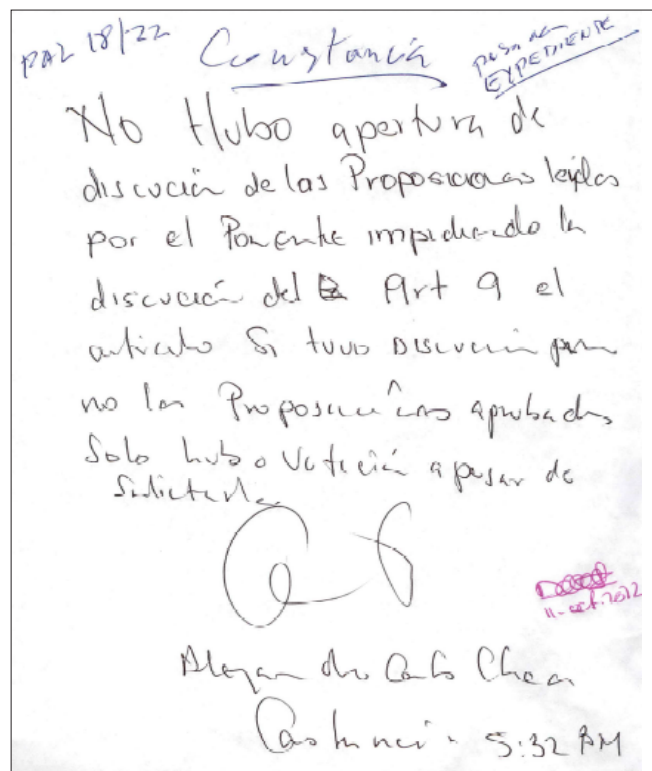 PAL 18/22
Constancia
pasa al
EXPEDIENTE
No Hubo apertura de
discución de las Proposiciones leidas
por el Ponente impidiendo la
discución del Art 9 el
articulo Si tuvo Discución pero
no las Proposiciones aprobadas
Solo hubo Votación apesar de
Solicitarla
11-oct.2022
Alejandro Carlos Chacon
Constancia 5:32 PM